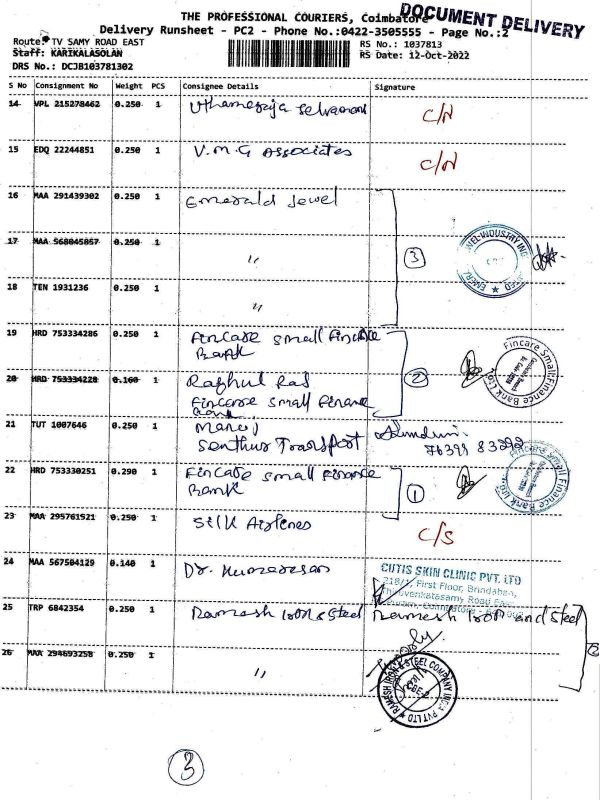 THE PROFESSIONAL COURIERS, Coimbatore
DOCUMENT DELIVERY
Delivery Runsheet - PC2 - Phone No.:0422-3505555 - Page No.:2
Route: TV SAMY ROAD EAST
RS No.: 1037813
Staff: KARIKALASOLAN
RS Date: 12-Oct-2022
DRS No.: DCJB103781302
S No Consignment No Weight PCS Consignee Details Signature
14 VPL 215278462 0.250 1 C/N
15 EDQ 22244851 0.250 1 V.M.G Associates C/N
16 MAA 291439302 0.250 1 Emerald Jewel
17 MAA 568045857 0.250 1 " 3
18 TEN 1931236 0.250 1 "
19 HRD 753334286 0.250 1 Fincare Small Finance
Bank
Fincare Small Finance Bank Ltd
20 HRD 753334228 0.160 1 Raghul Raj 2
Fincare Small Finance
Bank
21 TUT 1007646 0.250 1 Manoj
Senthur Transport
22 HRD 753330251 0.290 1 Fincare Small Finance
Bank 1
Fincare Small Finance Bank Ltd
23 MAA 295761521 0.250 1 Silk Airlines C/S
24 MAA 567504129 0.140 1 Dr. Kumaresan
CUTIS SKIN CLINIC PVT. LTD
218/1, First Floor, Brindaban,
Thiruvenkatasamy Road East
25 TRP 6842354 0.250 1 Ramesh Iron & Steel Ramesh Iron and Steel
26 MAA 294693258 0.250 1 "
RAMESH IRON & STEEL COMPANY INDIA PVT LTD
CBE-2
3